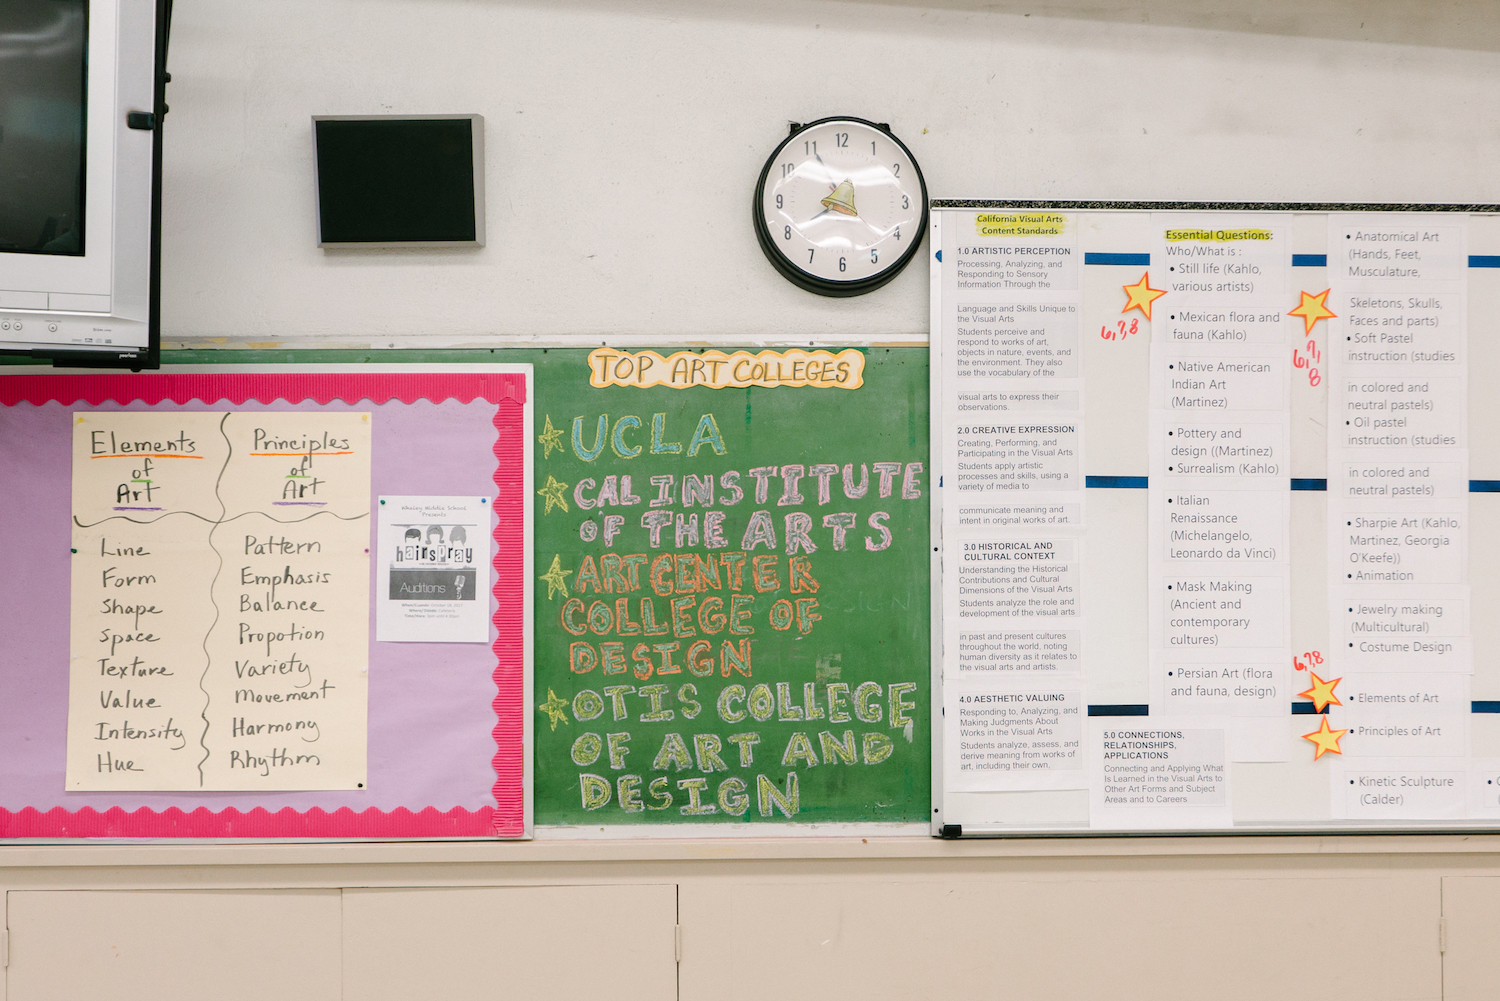 Elements
of
Art
Line
Form
Shape
Space
Texture
Value
Intensity
Hue
Principles
of
Art
Pattern
Emphasis
Balance
Propotion
Variety
Movement
Harmony
Rhythm
Whaley Middle School
Presents
hairspray
Auditions
TOP ART COLLEGES
UCLA
CAL INSTITUTE
OF THE ARTS
ART CENTER
COLLEGE OF
DESIGN
OTIS COLLEGE
OF ART AND
DESIGN
12
1
2
3
4
5
6
7
8
9
10
11
California Visual Arts
Content Standards
1.0 ARTISTIC PERCEPTION
Processing, Analyzing, and
Responding to Sensory
Information Through the
Language and Skills Unique to
the Visual Arts
Students perceive and
respond to works of art,
objects in nature, events, and
the environment. They also
use the vocabulary of the
visual arts to express their
observations.
2.0 CREATIVE EXPRESSION
Creating, Performing, and
Participating in the Visual Arts
Students apply artistic
processes and skills, using a
variety of media to
communicate meaning and
intent in original works of art.
3.0 HISTORICAL AND
CULTURAL CONTEXT
Understanding the Historical
Contributions and Cultural
Dimensions of the Visual Arts
Students analyze the role and
development of the visual arts
in past and present cultures
throughout the world, noting
human diversity as it relates to
the visual arts and artists.
4.0 AESTHETIC VALUING
Responding to, Analyzing, and
Making Judgments About
Works in the Visual Arts
Students analyze, assess, and
derive meaning from works of
art, including their own,
5.0 CONNECTIONS,
RELATIONSHIPS,
APPLICATIONS
Connecting and Applying What
Is Learned in the Visual Arts to
Other Art Forms and Subject
Areas and to Careers
Essential Questions:
Who/What is :
• Still life (Kahlo,
various artists)
6,7,8
• Mexican flora and
fauna (Kahlo)
• Native American
Indian Art
(Martinez)
• Pottery and
design ((Martinez)
• Surrealism (Kahlo)
• Italian
Renaissance
(Michelangelo,
Leonardo da Vinci)
• Mask Making
(Ancient and
contemporary
cultures)
• Persian Art (flora
and fauna, design)
• Anatomical Art
(Hands, Feet,
Musculature,
Skeletons, Skulls,
Faces and parts)
• Soft Pastel
instruction (studies
6,7,
8
in colored and
neutral pastels)
• Oil pastel
instruction (studies
in colored and
neutral pastels)
• Sharpie Art (Kahlo,
Martinez, Georgia
O'Keefe))
• Animation
• Jewelry making
(Multicultural)
• Costume Design
6,7,8
• Elements of Art
• Principles of Art
• Kinetic Sculpture
(Calder)